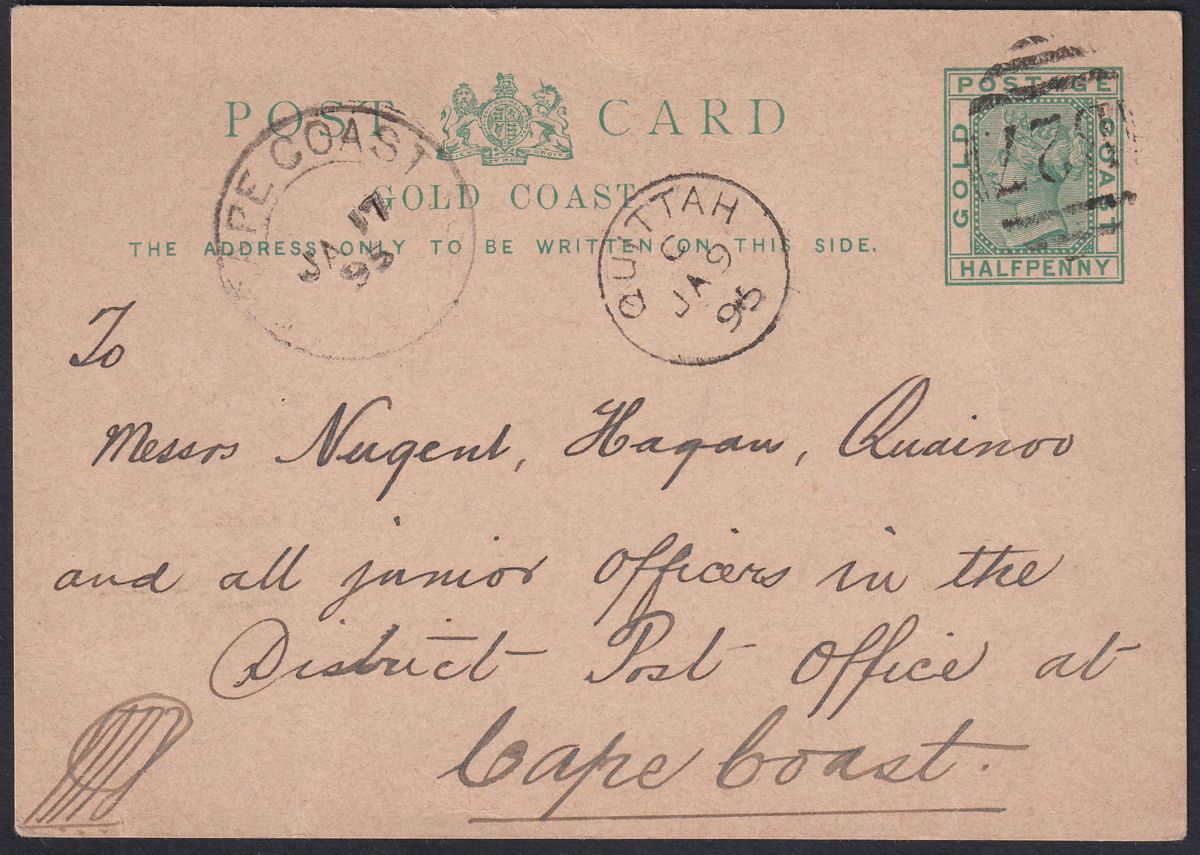 POST CARD
GOLD COAST
THE ADDRESS ONLY TO BE WRITTEN ON THIS SIDE.
POSTAGE
GOLD
COAST
HALFPENNY
CAPE COAST
JA 17
95
QUITTAH
C
JA 9
95
To
Messrs Nugent, Hagan, Quainoo
and all junior Officers in the
District Post Office at
Cape Coast.